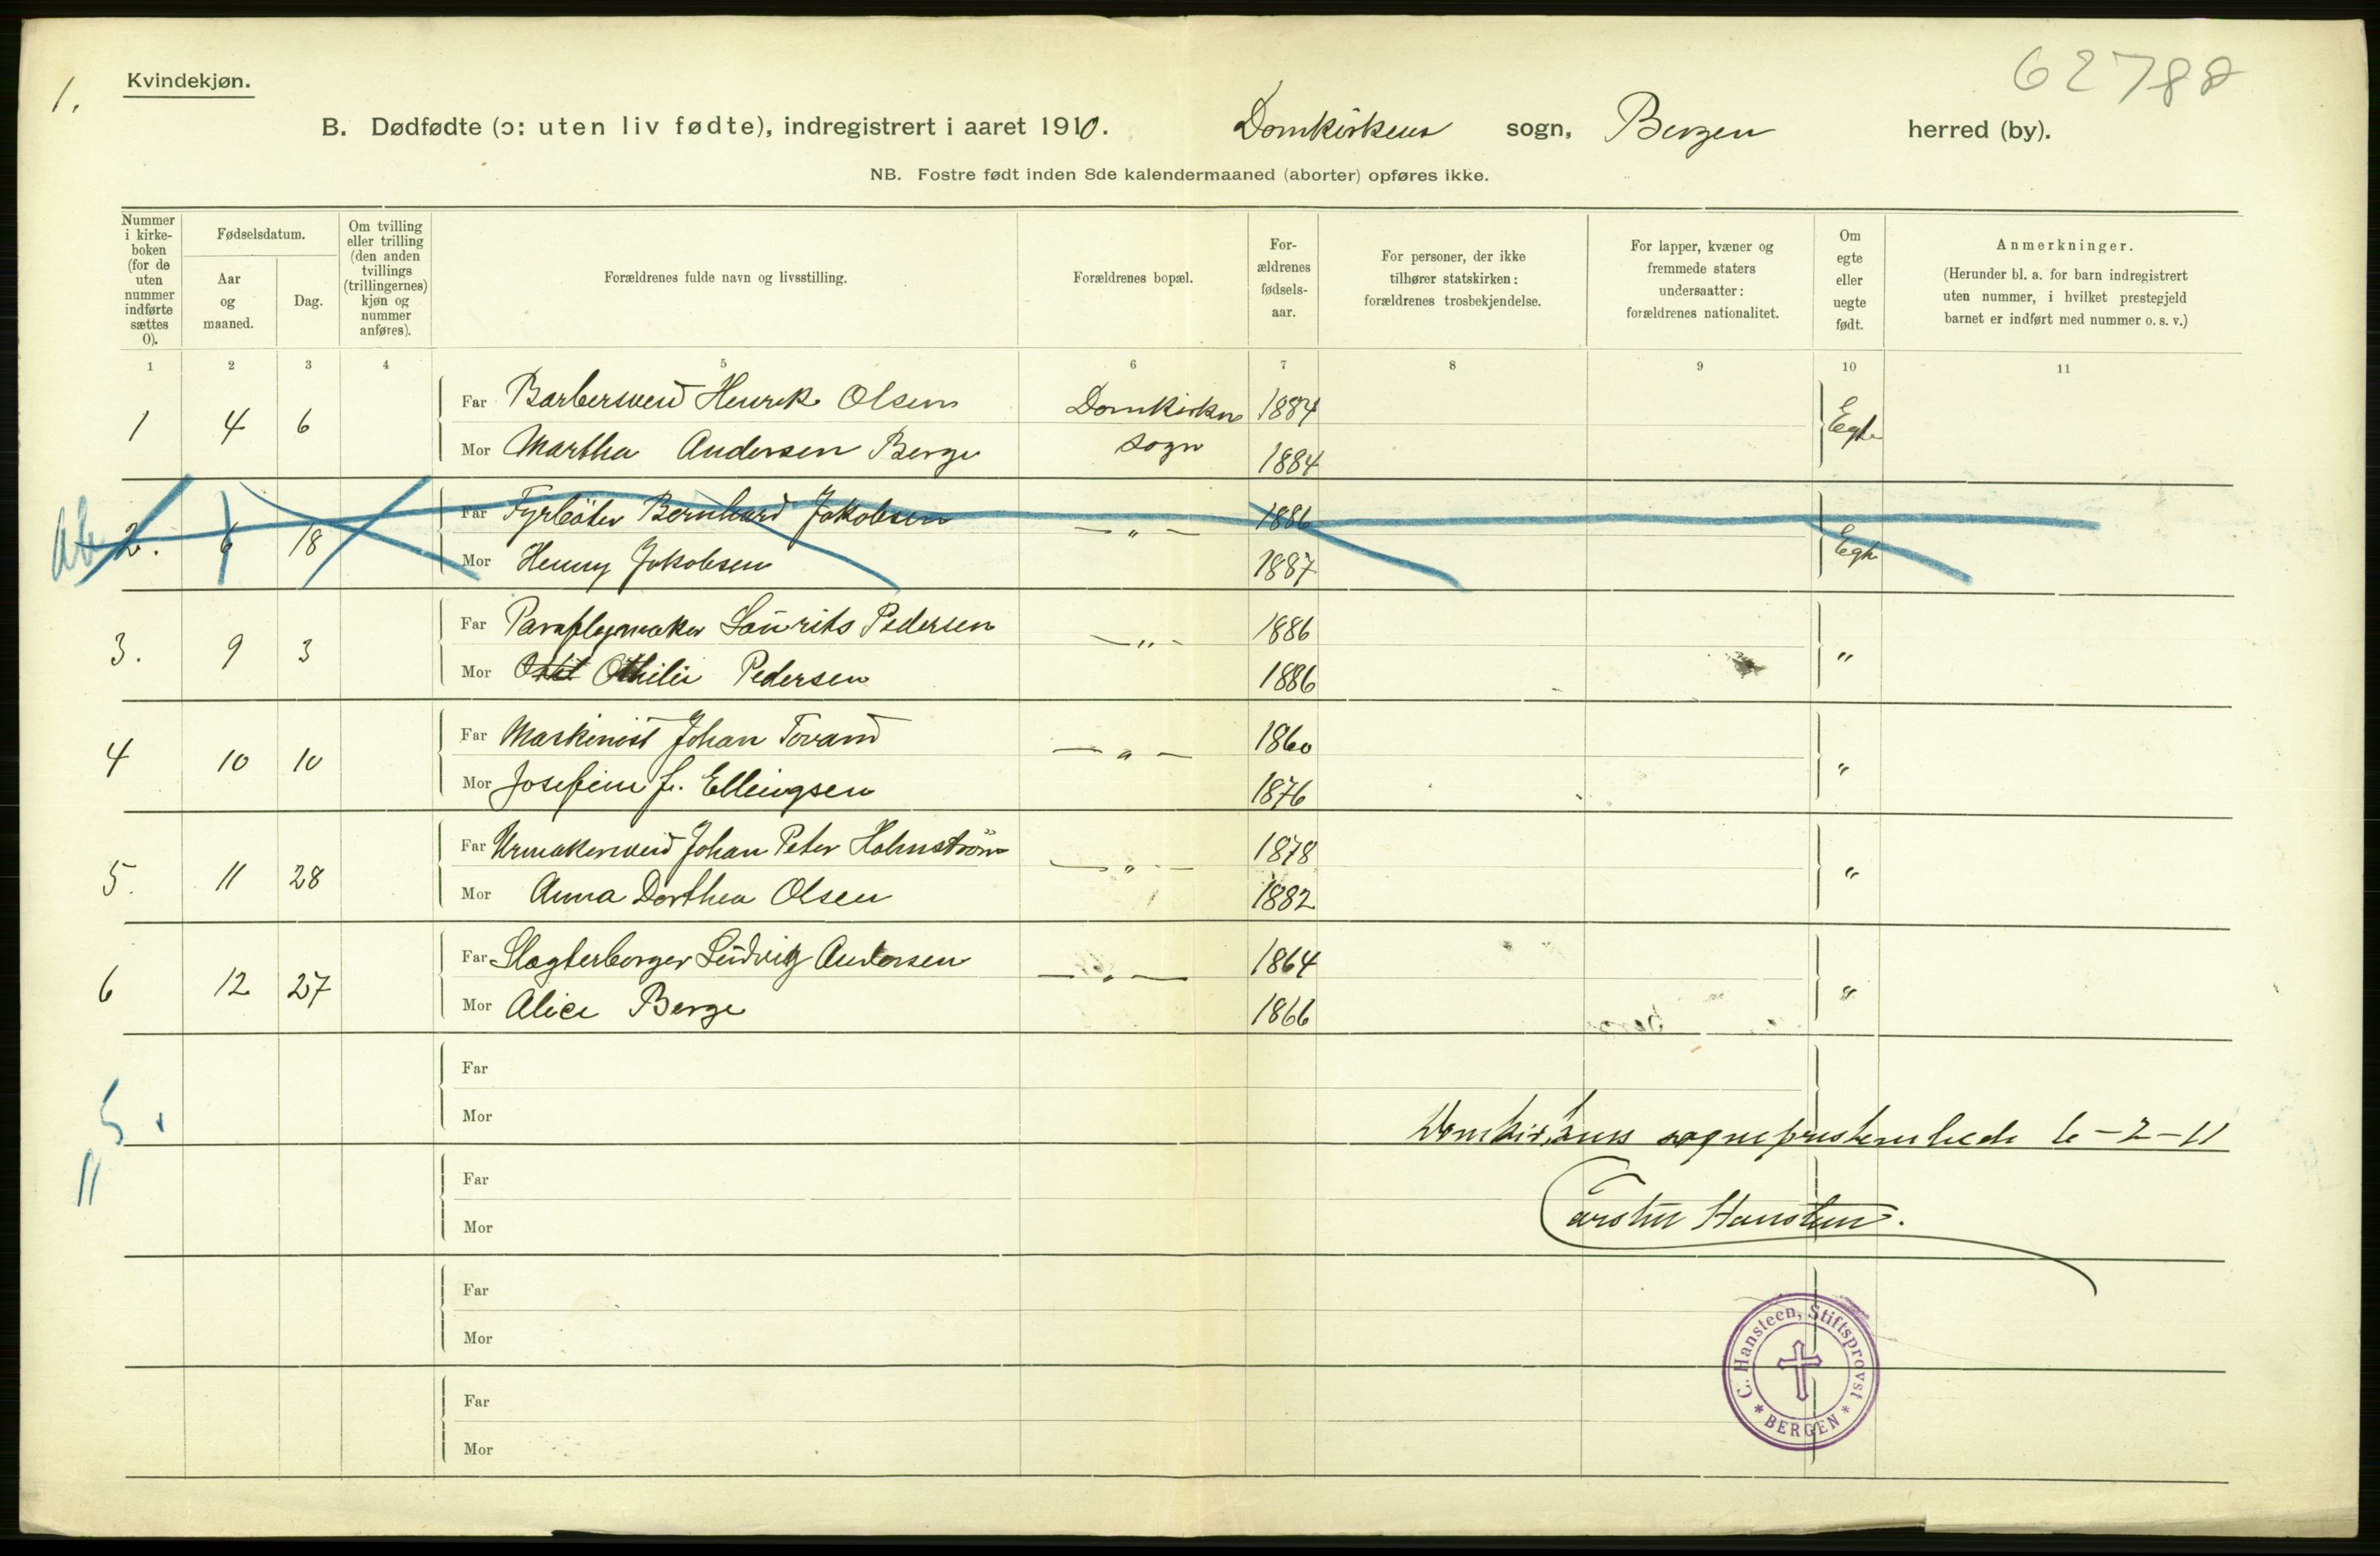 1.
Kvindekjøn.
62788
B. Dødfødte (ɔ: uten liv fødte), indregistrert i aaret 1910. Domkirkens sogn, Bergen herred (by).
NB. Fostre født inden 8de kalendermaaned (aborter) opføres ikke.
Nummer i kirke-boken (for de uten nummer indførte sættes 0).
Fødselsdatum.
Aar og maaned.
Dag.
Om tvilling eller trilling (den anden tvillings (trillingernes) kjøn og nummer anføres).
Forældrenes fulde navn og livsstilling.
Forældrenes bopæl.
For-ældrenes fødsels-aar.
For personer, der ikke tilhører statskirken: forældrenes trosbekjendelse.
For lapper, kvæner og fremmede staters undersaatter: forældrenes nationalitet.
Om egte eller uegte født.
Anmerkninger.
(Herunder bl. a. for barn indregistrert uten nummer, i hvilket prestegjeld barnet er indført med nummer o. s. v.)
1 2 3 4 5 6 7 8 9 10 11
1 4 6 Far Barbersvend Henrik Olsen Domkirkens 1884 Egte
Mor Martha Andersen Berge sogn 1884
Ab 2. 6 18 Far Fyrbøter Bernhard Jakobsen — „ — 1886 Egte
Mor Henny Jakobsen 1887
3. 9 3 Far Paraplymaker Laurits Pedersen — „ — 1886 „
Mor Othilie Pedersen 1886
4 10 10 Far Maskinist Johan Tovand — „ — 1860 „
Mor Josefine f. Ellingsen 1876
5. 11 28 Far Urmakersvend Johan Peter Holmström — „ — 1878 „
Mor Anna Dorthea Olsen 1882
6 12 27 Far Slagterborger Ludvig Andersen — „ — 1864 „
Mor Alice Berge 1866
Far
5.
Mor
Domkirkens sogneprestembede 6-2-11
Far
Mor
Carsten Hansteen.
Far
Mor
C. Hansteen, Stiftsprovst
* BERGEN *
Far
Mor